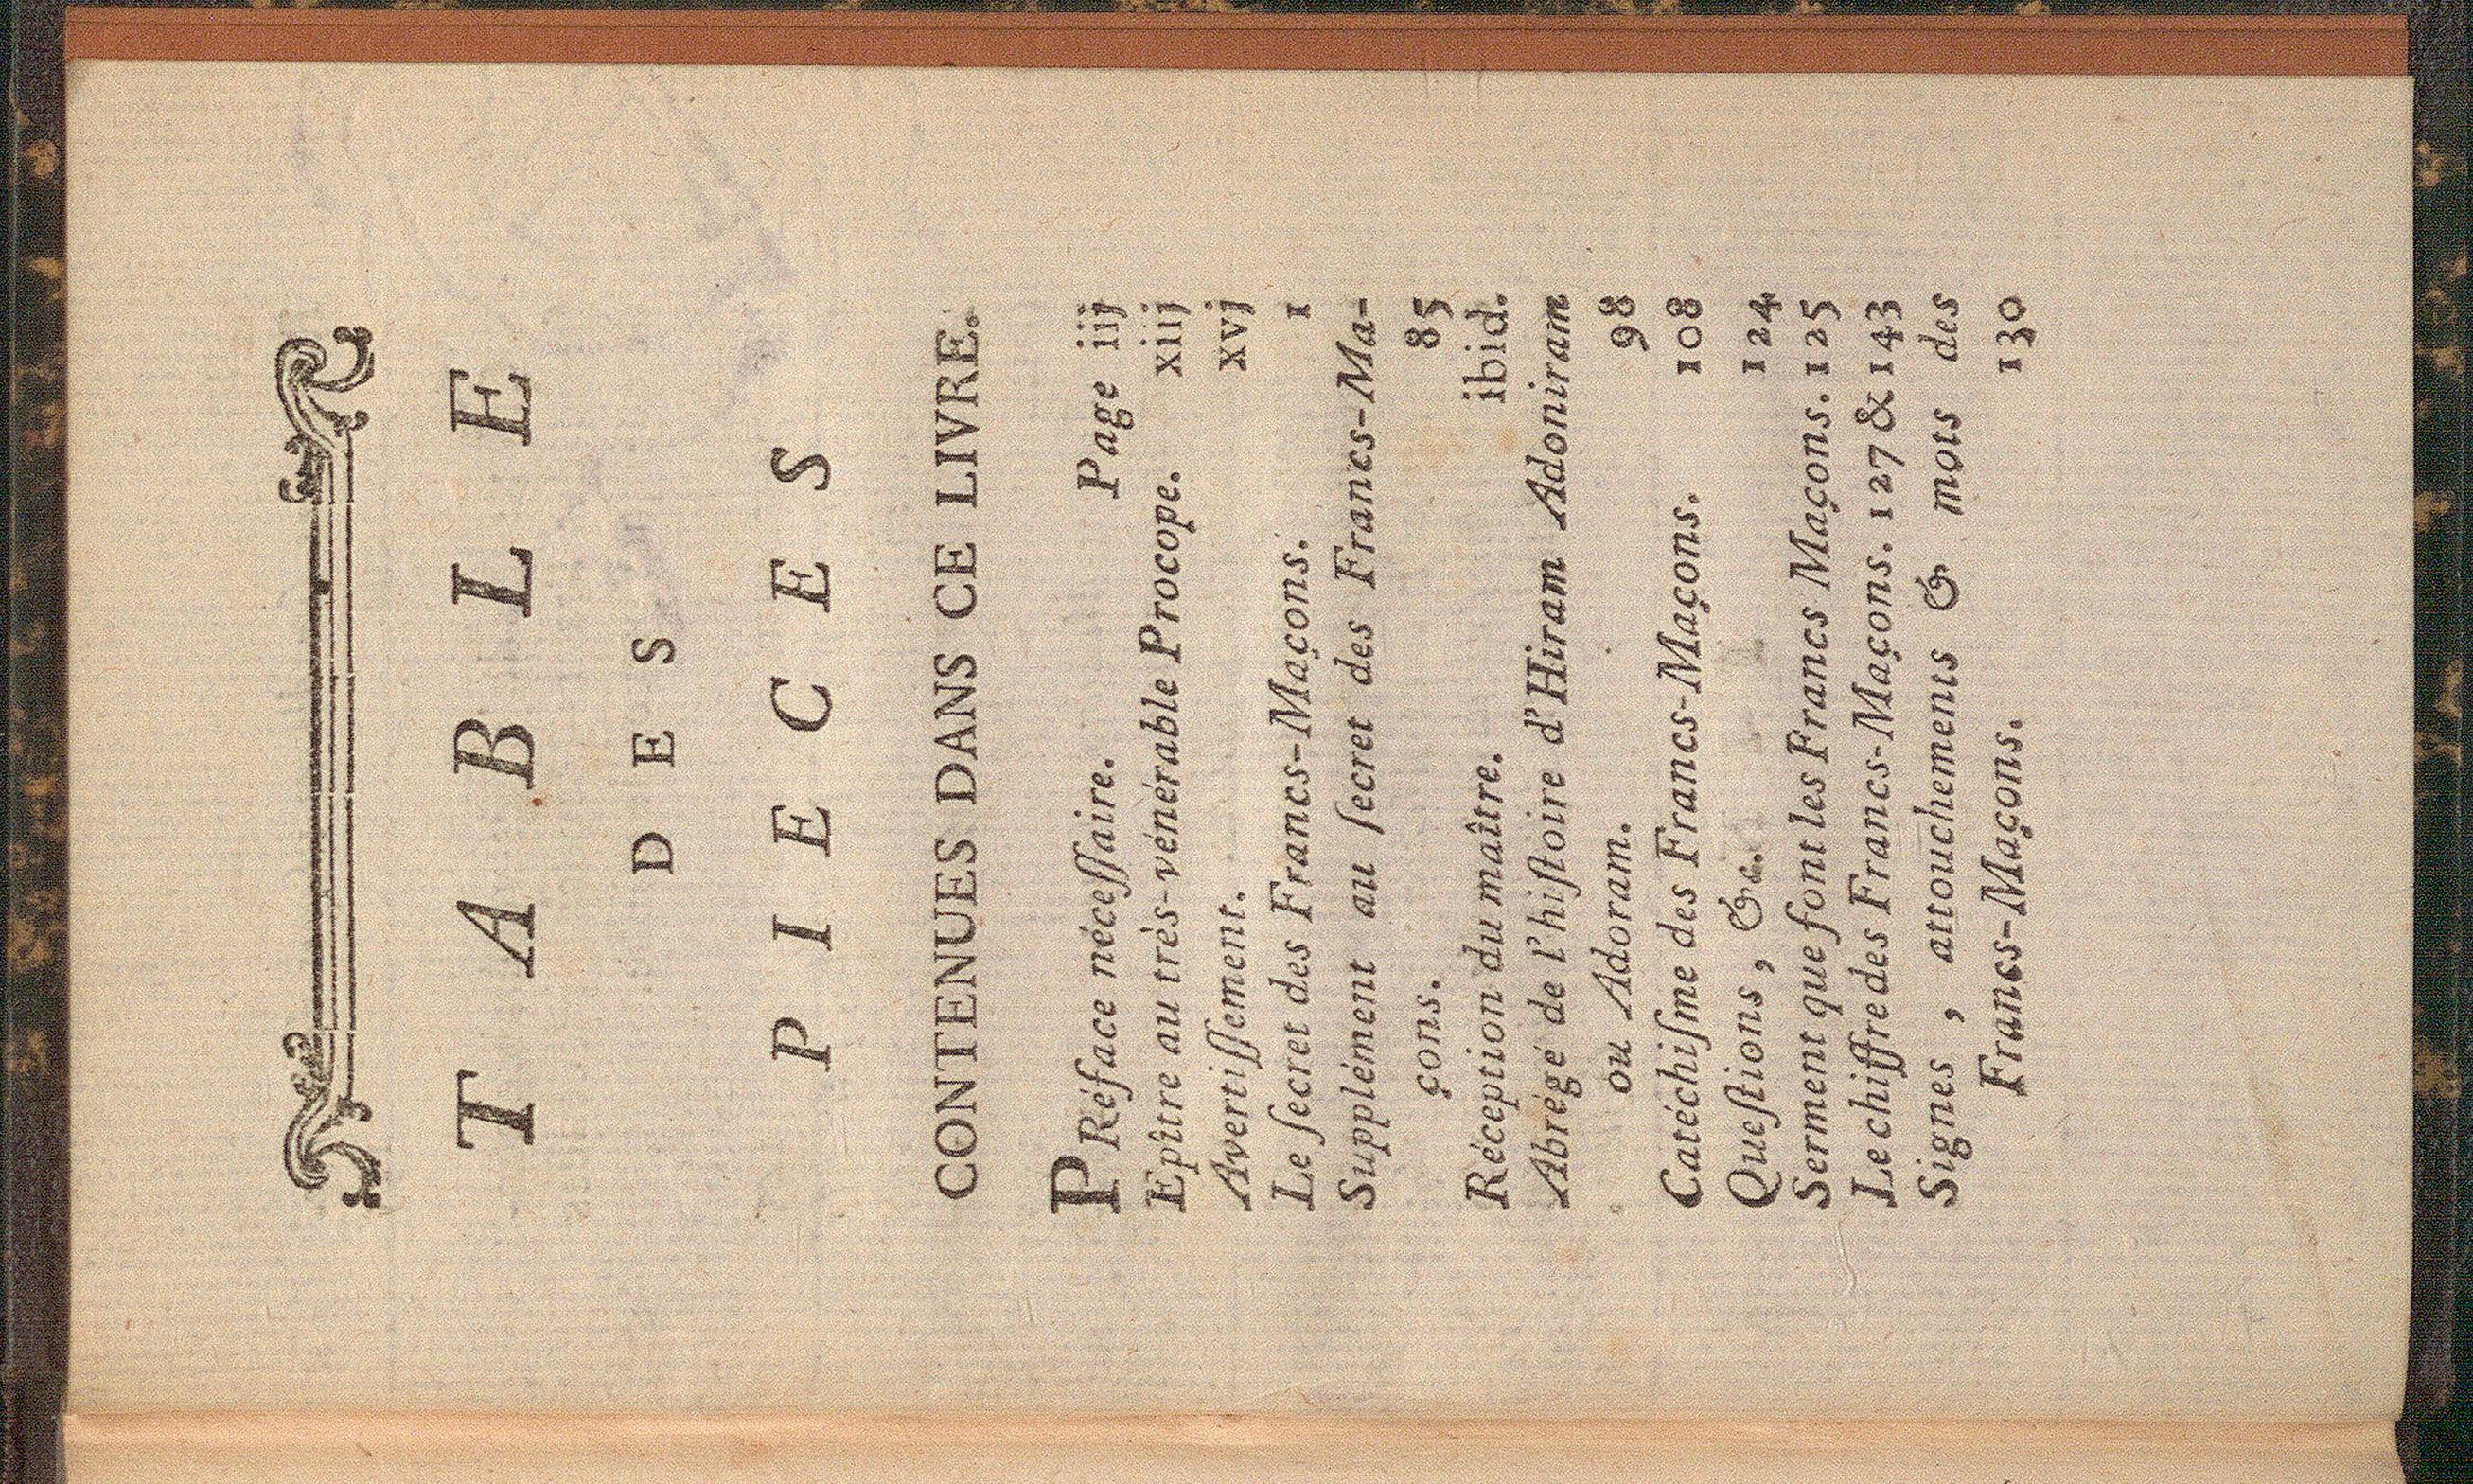 TABLE
DES
PIECES
CONTENUES DANS CE LIVRE.
PRéface néceſſaire. Page iij
Epître au très-vénérable Procope. xiij
Avertiſſement. xvj
Le ſecret des Francs-Maçons. 1
Supplément au ſecret des Francs-Ma-
çons. 85
Réception du maître. ibid.
Abrégé de l'hiſtoire d'Hiram Adoniram
ou Adoram. 98
Catéchiſme des Francs-Maçons. 108
Queſtions, &c. 124
Serment que font les Francs Maçons. 125
Le chiffre des Francs-Maçons. 127 & 143
Signes, attouchements & mots des
Francs-Maçons. 130